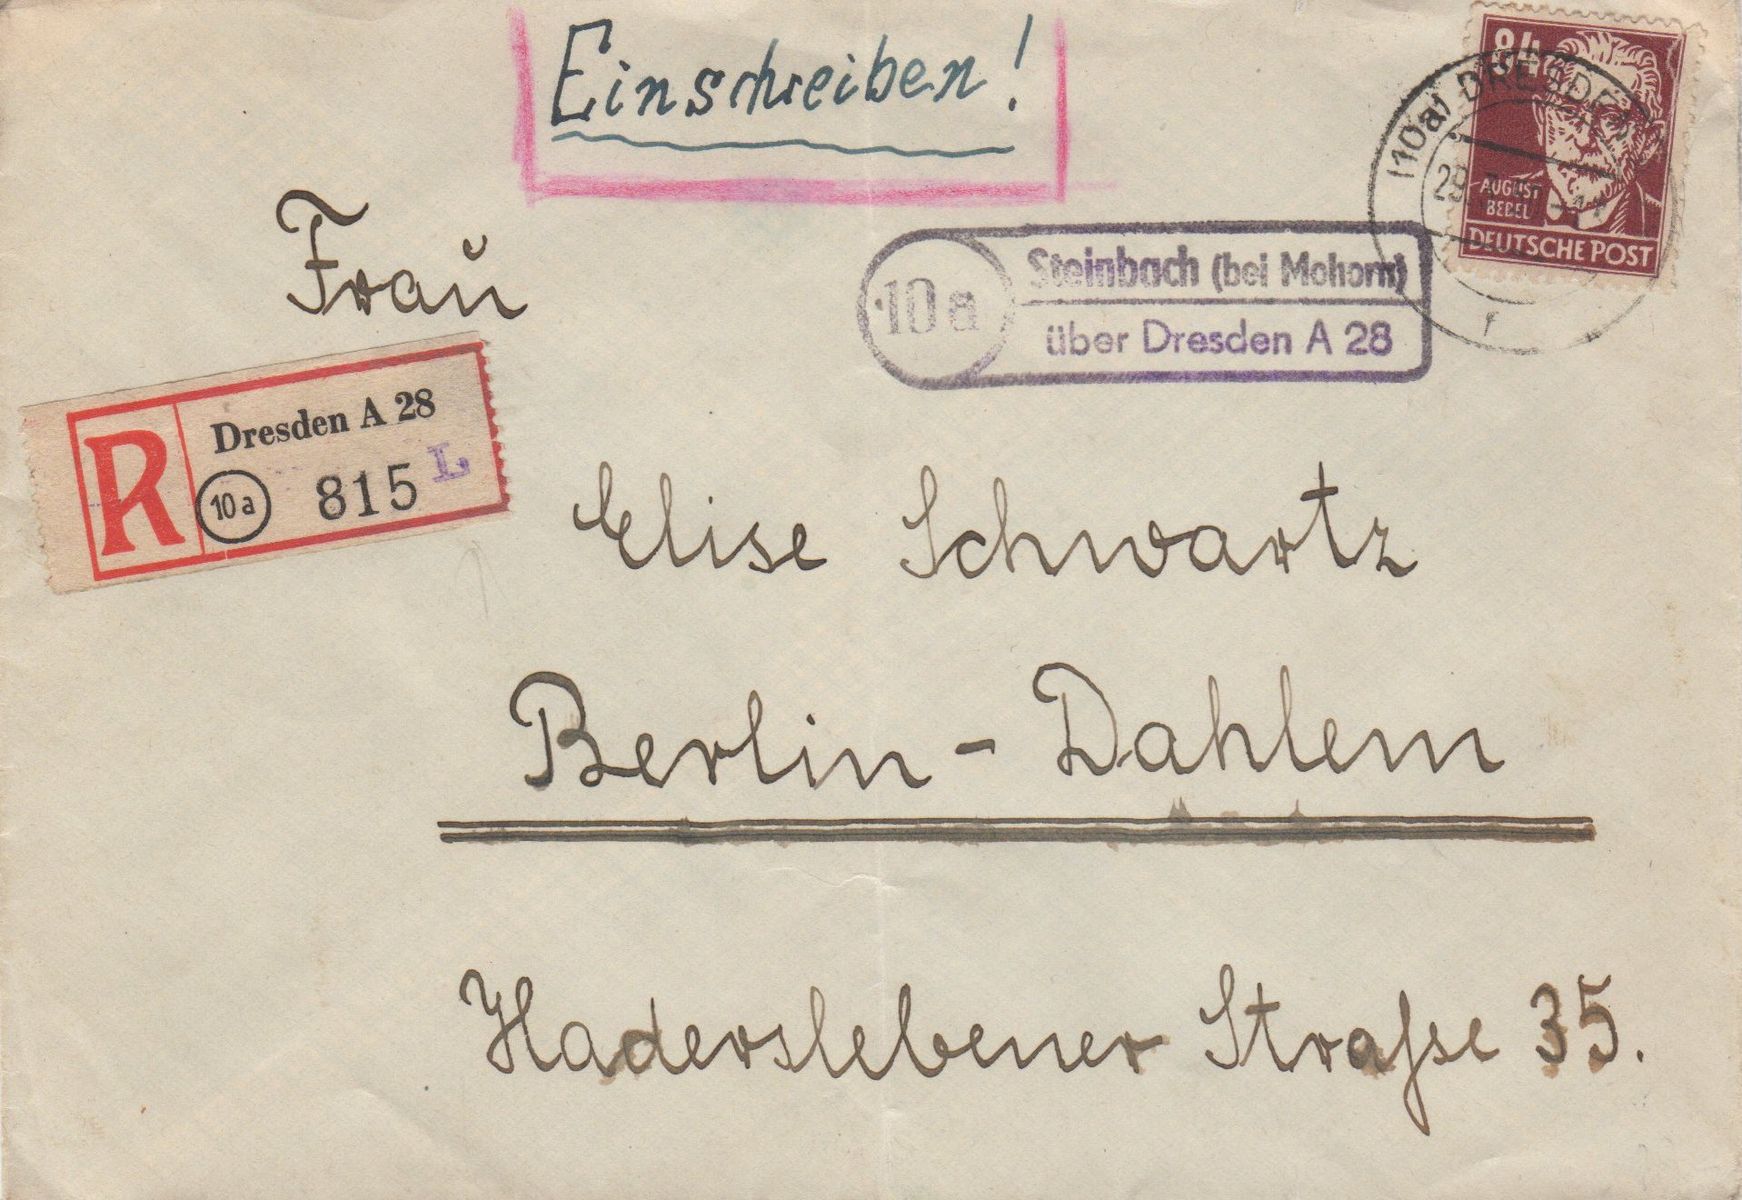 Einschreiben!
84
AUGUST
BEBEL
DEUTSCHE POST
(10a) DRESDEN
29
f
10a
Steinbach (bei Mohorn)
über Dresden A 28
Frau
R
Dresden A 28
10a
815 L
Elise Schwartz
Berlin - Dahlem
Haderslebener Straße 35.